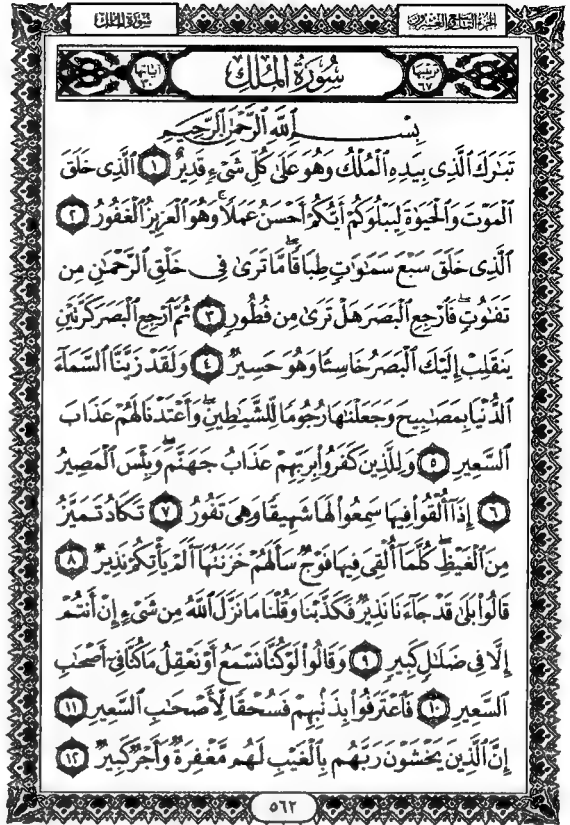 الجزء التاسع والعشرون
سورة الملك
ترتيبها ٦٧
سُورَةُ الْمُلْكِ
آياتها ٣٠
بِسْمِ اللَّهِ الرَّحْمَٰنِ الرَّحِيمِ
تَبَٰرَكَ ٱلَّذِى بِيَدِهِ ٱلْمُلْكُ وَهُوَ عَلَىٰ كُلِّ شَىْءٍ قَدِيرٌ ١ ٱلَّذِى خَلَقَ
ٱلْمَوْتَ وَٱلْحَيَوٰةَ لِيَبْلُوَكُمْ أَيُّكُمْ أَحْسَنُ عَمَلًا ۚ وَهُوَ ٱلْعَزِيزُ ٱلْغَفُورُ ٢
ٱلَّذِى خَلَقَ سَبْعَ سَمَٰوَٰتٍ طِبَاقًا ۖ مَّا تَرَىٰ فِى خَلْقِ ٱلرَّحْمَٰنِ مِن
تَفَٰوُتٍ ۖ فَٱرْجِعِ ٱلْبَصَرَ هَلْ تَرَىٰ مِن فُطُورٍ ٣ ثُمَّ ٱرْجِعِ ٱلْبَصَرَ كَرَّتَيْنِ
يَنقَلِبْ إِلَيْكَ ٱلْبَصَرُ خَاسِئًا وَهُوَ حَسِيرٌ ٤ وَلَقَدْ زَيَّنَّا ٱلسَّمَآءَ
ٱلدُّنْيَا بِمَصَٰبِيحَ وَجَعَلْنَٰهَا رُجُومًا لِّلشَّيَٰطِينِ ۖ وَأَعْتَدْنَا لَهُمْ عَذَابَ
ٱلسَّعِيرِ ٥ وَلِلَّذِينَ كَفَرُوا۟ بِرَبِّهِمْ عَذَابُ جَهَنَّمَ ۖ وَبِئْسَ ٱلْمَصِيرُ
٦ إِذَآ أُلْقُوا۟ فِيهَا سَمِعُوا۟ لَهَا شَهِيقًا وَهِىَ تَفُورُ ٧ تَكَادُ تَمَيَّزُ
مِنَ ٱلْغَيْظِ ۖ كُلَّمَآ أُلْقِىَ فِيهَا فَوْجٌ سَأَلَهُمْ خَزَنَتُهَآ أَلَمْ يَأْتِكُمْ نَذِيرٌ ٨
قَالُوا۟ بَلَىٰ قَدْ جَآءَنَا نَذِيرٌ فَكَذَّبْنَا وَقُلْنَا مَا نَزَّلَ ٱللَّهُ مِن شَىْءٍ إِنْ أَنتُمْ
إِلَّا فِى ضَلَٰلٍ كَبِيرٍ ٩ وَقَالُوا۟ لَوْ كُنَّا نَسْمَعُ أَوْ نَعْقِلُ مَا كُنَّا فِىٓ أَصْحَٰبِ
ٱلسَّعِيرِ ١٠ فَٱعْتَرَفُوا۟ بِذَنۢبِهِمْ فَسُحْقًا لِّأَصْحَٰبِ ٱلسَّعِيرِ ١١
إِنَّ ٱلَّذِينَ يَخْشَوْنَ رَبَّهُم بِٱلْغَيْبِ لَهُم مَّغْفِرَةٌ وَأَجْرٌ كَبِيرٌ ١٢
٥٦٢